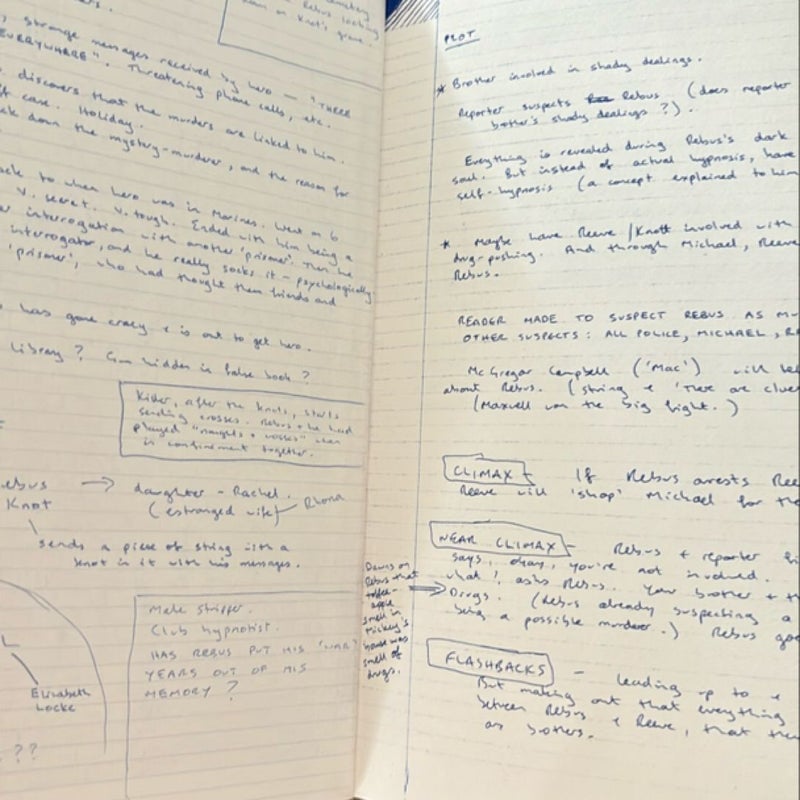 cemetery
Rebus looking
down on Knot's grave.
strange messages received by hero — "THERE
EVERYWHERE". Threatening phone calls, etc.
discovers that the murders are linked to him.
case. Holiday.
down the mystery-murderer, and the reason for
to when hero was in Marines. Went on 6
V. secret. V. tough. Ended with him being a
interrogation with another 'prisoner'. Then he
interrogator, and he really socks it - psychologically
'prisoner', who had thought them friends and
has gone crazy & is out to get hero.
Library? Gun hidden in false book?
Killer, after the knots, starts
sending crosses. Rebus & he had
played "noughts & crosses" when
in confinement together.
Rebus → daughter - Rachel.
Knot (estranged wife) Rhona
sends a piece of string with a
knot in it with his messages.
Elizabeth
Locke
??
Male stripper.
Club hypnotist.
HAS REBUS PUT HIS 'WAR'
YEARS OUT OF HIS
MEMORY?
PLOT
* Brother involved in shady dealings.
Reporter suspects Rebus (does reporter
brother's shady dealings?).
Everything is revealed during Rebus's dark
soul. But instead of actual hypnosis, have
self-hypnosis (a concept explained to him
* Maybe have Reeve/Knott involved with
drug-pushing. And through Michael, Reeve
Rebus.
READER MADE TO SUSPECT REBUS AS
OTHER SUSPECTS: ALL POLICE, MICHAEL,
McGregor Campbell ('Mac') will
about Rebus. (string & 'There are clues
(Maxwell won the big fight.)
CLIMAX - If Rebus arrests
Reeve will 'shop' Michael for the
NEAR CLIMAX - Rebus & reporter
says, okay, you're not involved.
what? asks Rebus. Your brother &
Drugs. (Rebus already suspecting a
being a possible murderer.) Rebus
Dawns on
Rebus that
toffee-
apple
smell in
Mickey's
house was
smell of
drugs.
FLASHBACKS - leading up to &
But making out that everything
between Rebus & Reeve, that
as brothers.